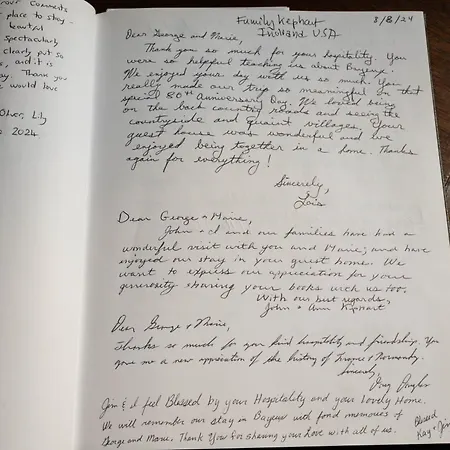 rove comments
place to stay.
beautiful
spectacularly
clearly put so
, and it is
ay. Thank you
e would love
Oliver, Lily
2024
Family Kephart
Indiana USA
8/8/24
Dear George and Marie,
Thank you so much for your hospitality. You
were so helpful teaching us about Bayeux.
We enjoyed your day with us so much. You
really made our trip so meaningful on that
special 80th Anniversary Day. We loved being
on the back country roads and seeing the
countryside and quaint villages. Your
guest house was wonderful and we
enjoyed being together in a home. Thanks
again for everything!
Sincerely,
Lois
Dear George + Marie,
John + I and our families have had a
wonderful visit with you and Marie, and have
enjoyed our stay in your guest home. We
want to express our appreciation for your
generosity sharing your books with us too.
With our best regards,
John + Ann Kephart
Dear George + Marie,
Thanks so much for your kind hospitality and friendship. You
gave me a new appreciation of the history of France + Normandy.
Sincerely,
Jim & I feel Blessed by your Hospitality and your Lovely Home.
We will remember our stay in Bayeux with fond memories of
George and Marie. Thank You for sharing your Love with all of us.
Blessed
Kay + Jim